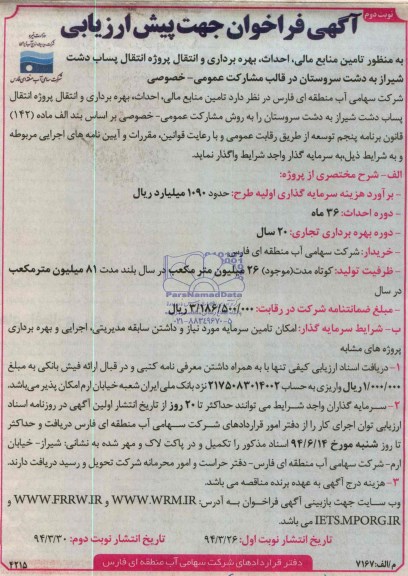 نوبت دوم
آگهی فراخوان جهت پیش ارزیابی
شرکت سهامی آب منطقه ای فارس
به منظور تامین منابع مالی، احداث، بهره برداری و انتقال پروژه انتقال پساب دشت
شیراز به دشت سروستان در قالب مشارکت عمومی- خصوصی
شرکت سهامی آب منطقه ای فارس در نظر دارد تامین منابع مالی، احداث، بهره برداری و انتقال پروژه انتقال
پساب دشت شیراز به دشت سروستان را به روش مشارکت عمومی- خصوصی بر اساس بند الف ماده (۱۴۲)
قانون برنامه پنجم توسعه از طریق رقابت عمومی و با رعایت قوانین، مقررات و آیین نامه های اجرایی مربوطه
و به شرایط ذیل،به سرمایه گذار واجد شرایط واگذار نماید.
الف- شرح مختصری از پروژه:
- برآورد هزینه سرمایه گذاری اولیه طرح: حدود ۱۰۹۰ میلیارد ریال
- دوره احداث: ۳۶ ماه
- دوره بهره برداری تجاری: ۲۰ سال
- خریدار: شرکت سهامی آب منطقه ای فارس
- ظرفیت تولید: کوتاه مدت(موجود) ۲۶ میلیون متر مکعب در سال بلند مدت ۸۱ میلیون مترمکعب
در سال
- مبلغ ضمانتنامه شرکت در رقابت: ۳/۱۸۶/۵۰۰/۰۰۰ ریال
ParsNamadData
۰۲۱-۸۸۳۴۹۶۷۰-۵
ب- شرایط سرمایه گذار: امکان تامین سرمایه مورد نیاز و داشتن سابقه مدیریتی، اجرایی و بهره برداری
پروژه های مشابه
۱- دریافت اسناد ارزیابی کیفی تنها با به همراه داشتن معرفی نامه کتبی و در قبال ارائه فیش بانکی به مبلغ
۱/۰۰۰/۰۰۰ ریال واریزی به حساب ۲۱۷۵۰۸۳۰۱۴۰۰۲ نزد بانک ملی ایران شعبه خیابان ارم امکان پذیر می باشد.
۲- سرمایه گذاران واجد شرایط می توانند حداکثر تا ۲۰ روز از تاریخ انتشار اولین آگهی در روزنامه اسناد
ارزیابی توان اجرای کار را از دفتر امور قراردادهای شرکت سهامی آب منطقه ای فارس دریافت و حداکثر
تا روز شنبه مورخ ۹۴/۶/۱۴ اسناد مذکور را تکمیل و در پاکت لاک و مهر شده به نشانی: شیراز- خیابان
ارم- شرکت سهامی آب منطقه ای فارس- دفتر حراست و امور محرمانه شرکت تحویل و رسید دریافت دارند.
۳- هزینه درج آگهی به عهده برنده مناقصه می باشد.
وب سایت جهت بازبینی آگهی فراخوان به آدرس: WWW.WRM.IR و WWW.FRRW.IR و
IETS.MPORG.IR می باشد.
تاریخ انتشار نوبت اول: ۹۴/۳/۲۶
تاریخ انتشار نوبت دوم: ۹۴/۳/۳۰
م/الف:۷۱۶۷
دفتر قراردادهای شرکت سهامی آب منطقه ای فارس
۴۲۱۵